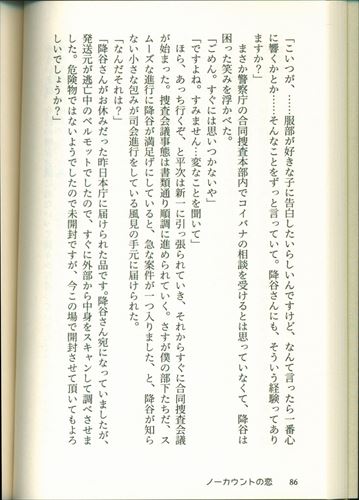 「こいつが、……服部が好きな子に告白したいらしいんですけど、なんて言ったら一番心
に響くかとか……そんなことをずっと言っていて。降谷さんにも、そういう経験ってあり
ますか？」
まさか警察庁の合同捜査本部内でコイバナの相談を受けるとは思っていなくて、降谷は
困った笑みを浮かべた。
「ごめん。すぐには思いつかないや」
「ですよね。すみません…変なことを聞いて」
ほら、あっち行くぞ、と平次は新一に引っ張られていき、それからすぐに合同捜査会議
が始まった。捜査会議事態は書類通り順調に進められていく。さすが僕の部下たちだ、ス
ムーズな進行に降谷が満足げにしていると、急な案件が一つ入りました、と、降谷が知ら
ない小さな包みが司会進行をしている風見の手元に届けられた。
「なんだそれは？」
「降谷さんがお休みだった昨日本庁に届けられた品です。降谷さん宛になっていましたが、
発送元が逃亡中のベルモットでしたので、すぐに外部から中身をスキャンして調べさせま
した。危険物ではないようでしたので未開封ですが、今この場で開封させて頂いてもよろ
しいでしょうか？」
ノーカウントの恋 86